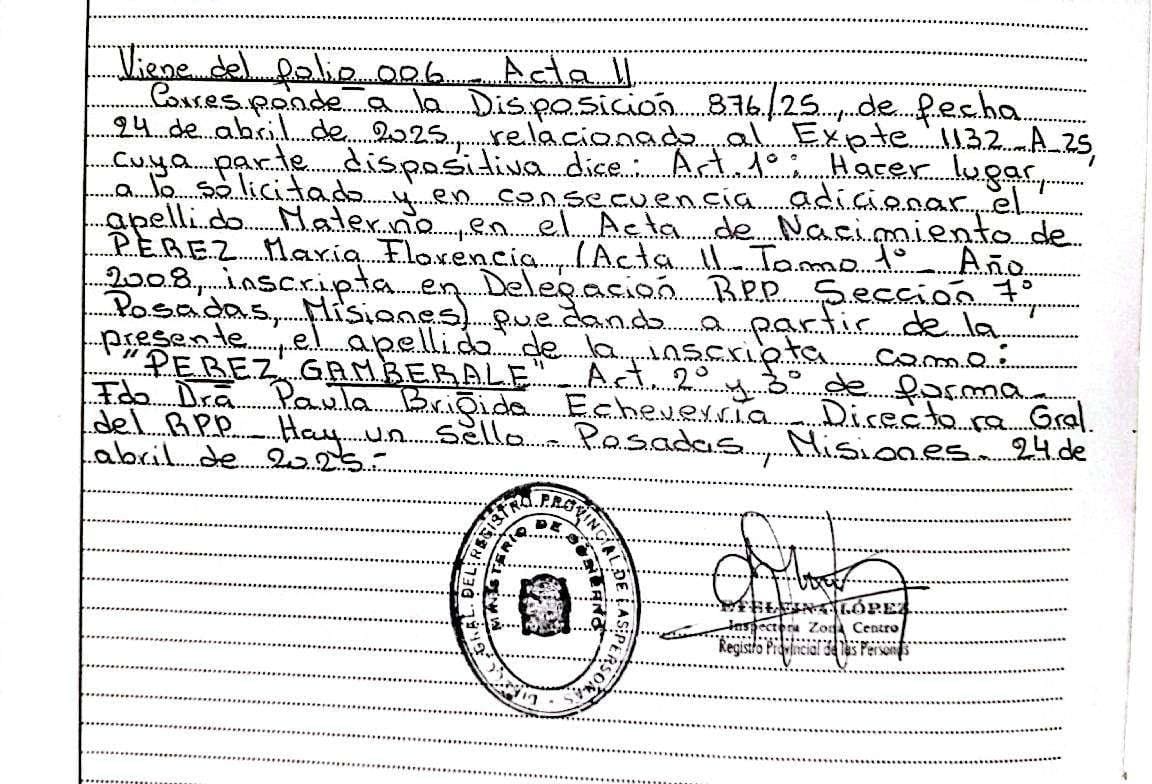 Viene del folio 006 - Acta 11
Corresponde a la Disposición 876/25, de fecha
24 de abril de 2025, relacionado al Expte 1132-A-25,
cuya parte dispositiva dice: Art. 1º: Hacer lugar,
a lo solicitado y en consecuencia adicionar el
apellido Materno, en el Acta de Nacimiento de
PEREZ María Florencia, (Acta 11 - Tomo 1º - Año
2008, inscripta en Delegación RPP Sección 7º,
Posadas, Misiones) quedando a partir de la
presente, el apellido de la inscripta como:
"PEREZ GAMBERALE" - Art. 2º y 3º de forma -
Fdo Dra Paula Brigida Echeverría - Directora Gral.
del RPP - Hay un sello - Posadas, Misiones - 24 de
abril de 2025 -
DIREC. GRAL. DEL REGISTRO PROVINCIAL DE LAS PERSONAS
MINISTERIO DE GOBIERNO
LÓPEZ
Inspectora Zona Centro
Registro Provincial de las Personas